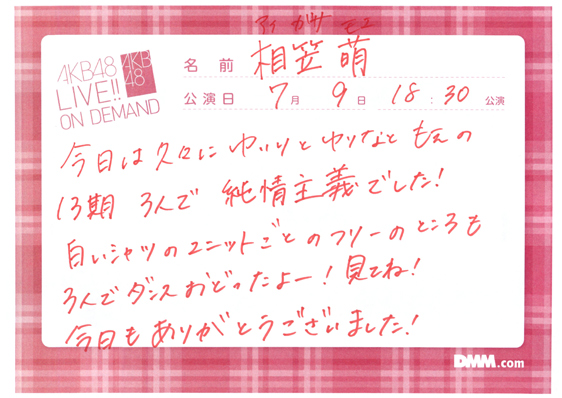 アイ ガサ モエ
AKB48
LIVE!!
ON DEMAND
AKB
48
名前 相笠萌
公演日 7月 9日 18:30 公演
今日は久々に ゆいりと ゆりなと もえの
13期 3人で 純情主義でした!
白いシャツのユニットごとのフリーのところも
3人でダンスおどったよー!見てね!
今日もありがとうございました!
DMM.com